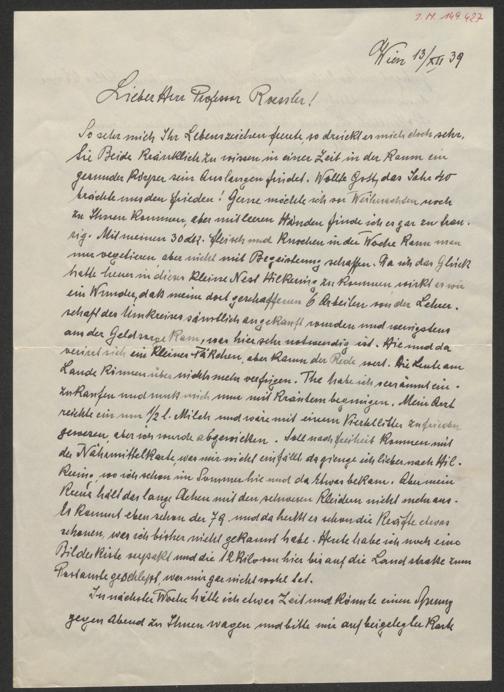 I. N. 149.427
Wien 13/XII 39
Lieber Herr Professor Roessler!
So sehr mich Ihr Lebenszeichen freute, so drückt es mich doch sehr,
Sie Beide kränklich zu wissen in einer Zeit in der kaum ein
gesunder Körper sein Auslangen findet. Wollte Gott, das Jahr 40
brächte uns den Frieden! Gerne möchte ich vor Weihnachten noch
zu Ihnen kommen, aber mit leeren Händen finde ich es gar zu trau-
rig. Mit meinen 30 dkr. Fleisch und Knochen in der Woche kann man
nur vegetieren aber nicht mit Begeisterung schaffen. Da ich das Glück
hatte heuer in dieses kleine Nest Hilkering zu kommen wirkt es wie
ein Wunder, daß meine dort geschaffenen 6 Arbeiten von der Lehrer-
schaft des Umkreises sämtlich angekauft wurden und wenigstens
an der Geldsorge kam, was hier sehr notwendig ist. Hie und da
verirrt sich ein kleines Päckchen, aber kaum der Rede wert. Die Leute am
Lande können über nichts mehr verfügen. Thee habe ich versäumt ein-
zukaufen und muß mich nun mit Kräutern begnügen. Mein Arzt
reichte ein um 1/2 l. Milch und wäre mit einem Viertelliter zufrieden
gewesen, aber ich wurde abgewiesen. Soll nach Freiheit kommen mit
der Nährmittelkarte, was mir nicht einfällt da gienge ich lieber nach Hil-
kering, wo ich schon im Sommer hie und da etwas bekam. Aber mein
Kreuz hält das lange Gehen mit den schweren Kleidern nicht mehr aus.
Es kommt eben schon der 79. und da heißt es schon die Kräfte etwas
schonen, was ich bisher nicht gekannt habe. Heute habe ich noch eine
Bilderkiste verpackt und die 12 Kilo von hier bis auf die Landstraße zum
Postamte geschleppt, was mir gar nicht wohl tat.
In nächster Woche hätte ich etwas Zeit und könnte einen Sprung
gegen Abend zu Ihnen wagen und bitte mir auf beigelegter Karte